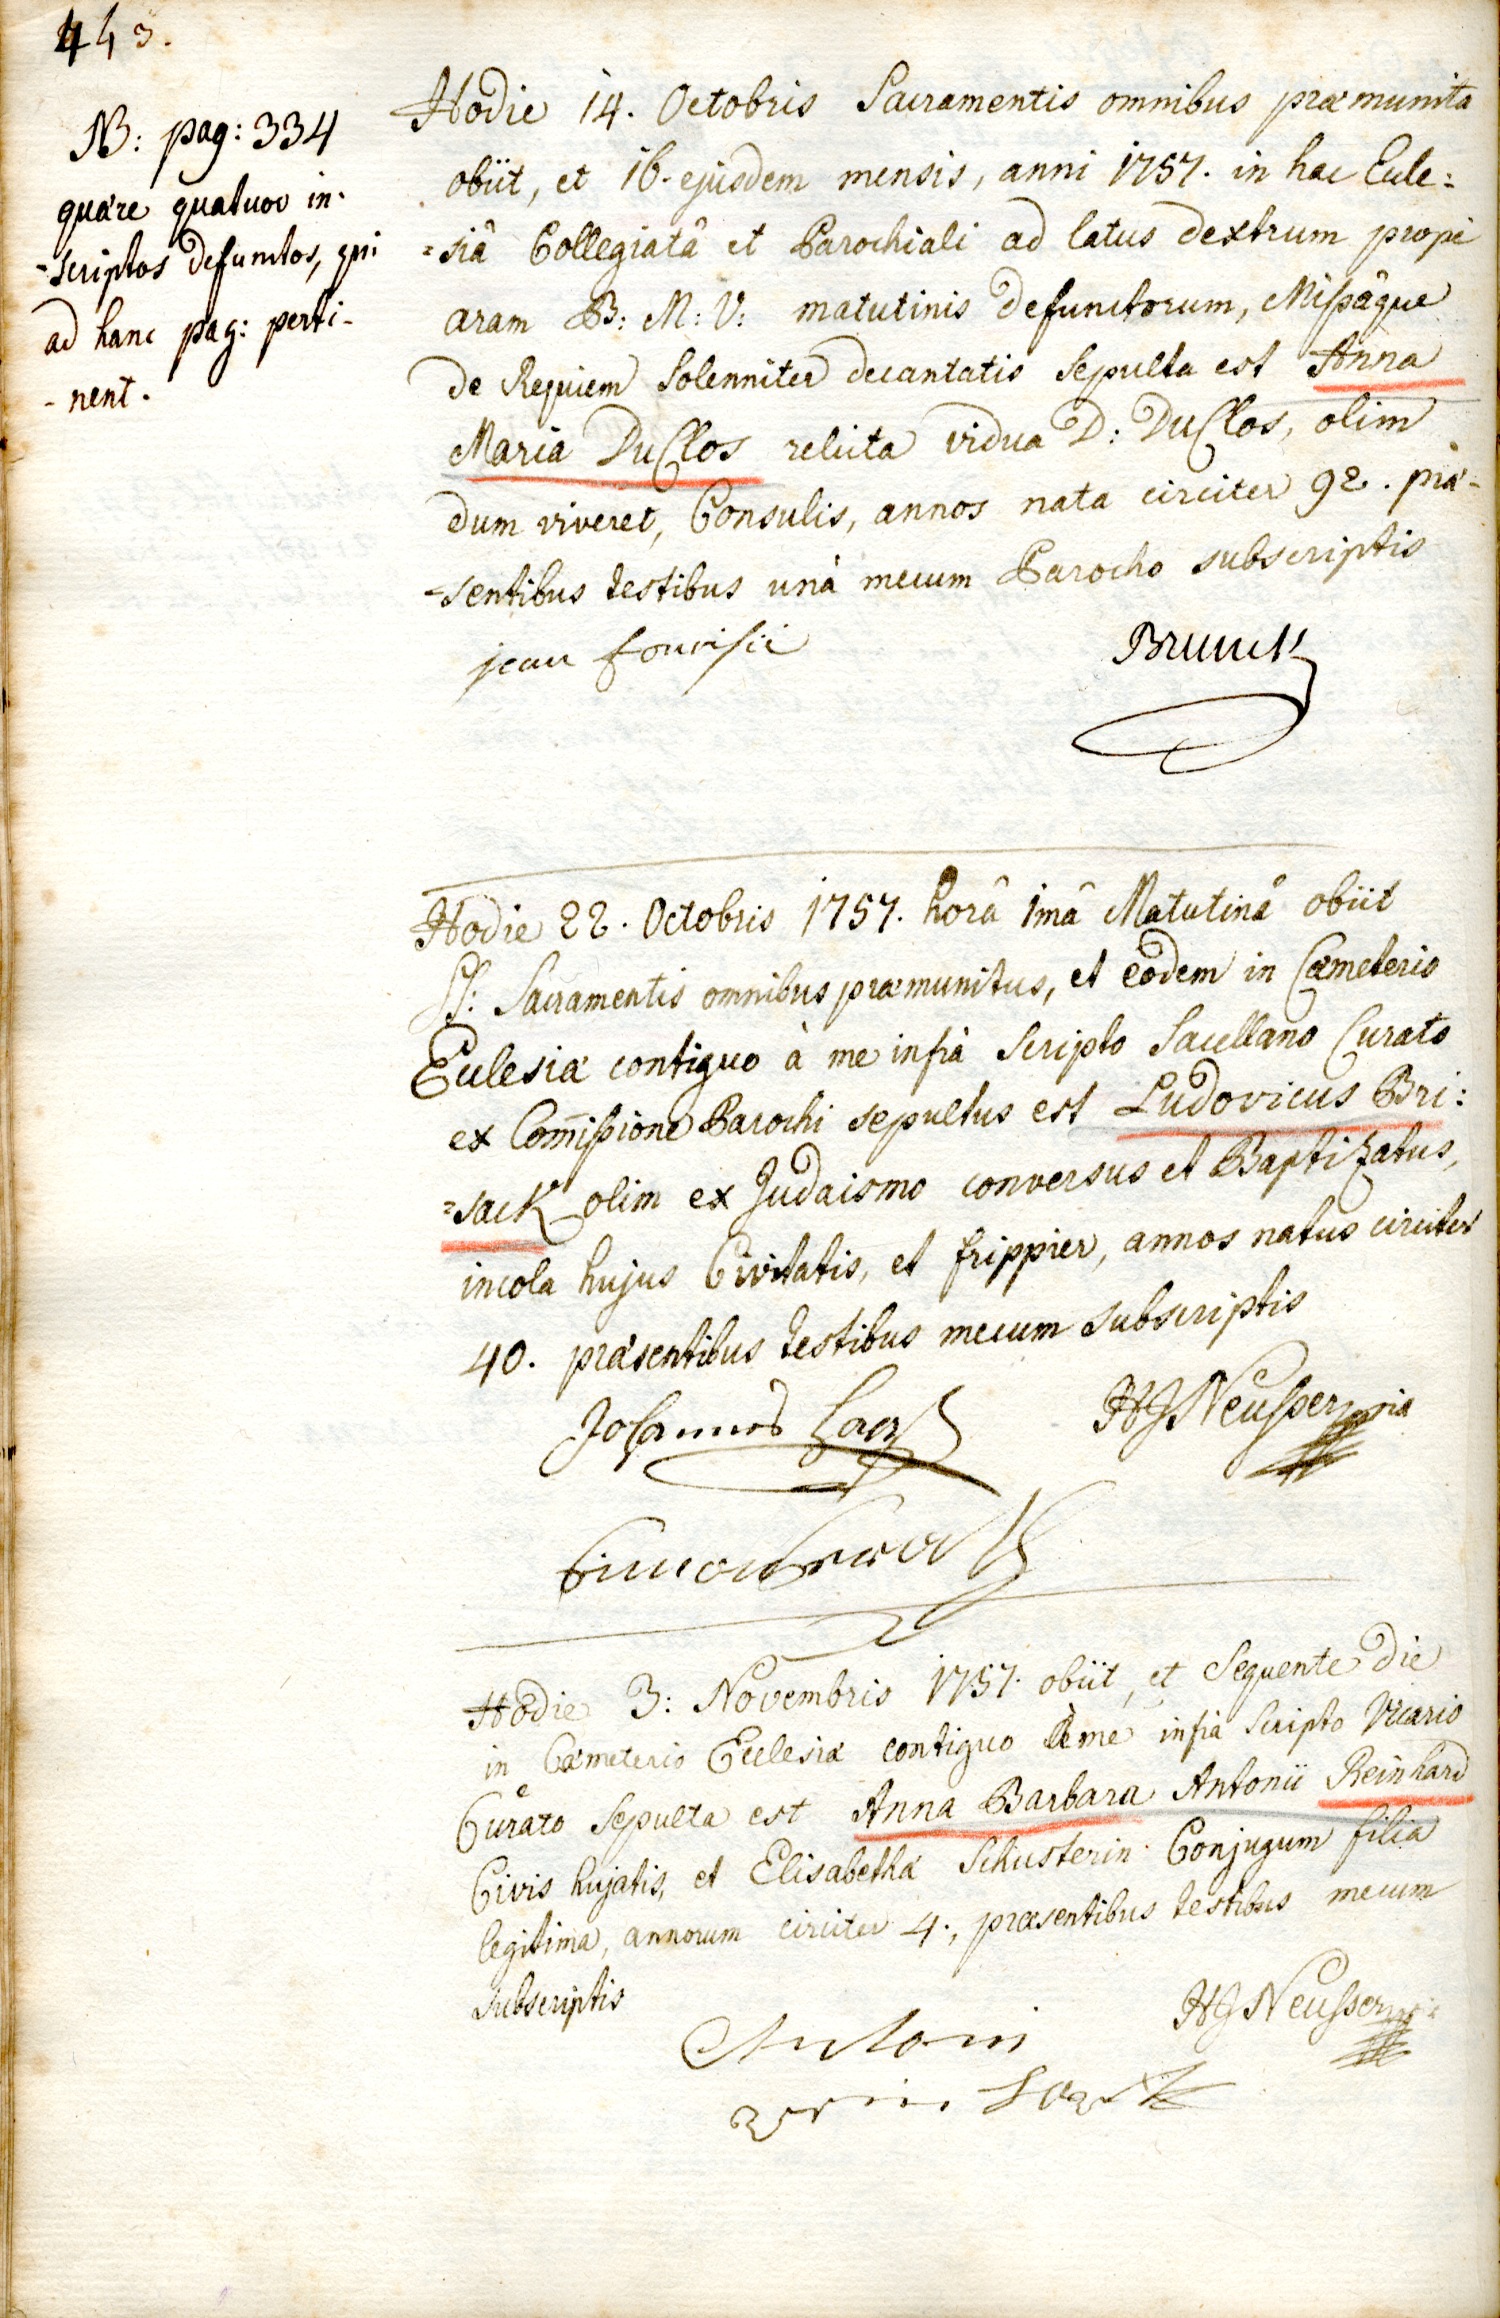 443.
NB: pag: 334
quære quatuor in-
-scriptos defunctos, qui
ad hanc pag: perti-
-nent.
Hodie 14. Octobris Sacramentis omnibus præmunita
obiit, et 16. ejusdem mensis, anni 1757. in hac Eccle=
=siâ Collegiatâ et Parochiali ad latus dextrum propè
aram B: M: V: matutinis defunctorum, Missâque
de Requiem solenniter decantatis sepulta est Anna
Maria DuClos relicta vidua D: DuClos, olim
dum viveret, Consulis, annos nata circiter 92. præ-
=sentibus testibus unà mecum Parocho subscriptis
jean
Brunck
Hodie 22. Octobris 1757. horâ 1mâ Matutinâ obiit
SS: Sacramentis omnibus præmunitus, et eodem in Cæmeterio
Ecclesiæ contiguo à me infrà scripto Sacellano Curato
ex Com̄issione Parochi sepultus est Ludovicus Bri:
=sack olim ex Judaismo conversus et Baptizatus,
incola hujus Civitatis, et frippier, annos natus circiter
40. præsentibus testibus mecum subscriptis
Johannes
HJNeusser
Hodie 3: Novembris 1757. obiit, et sequente die
in Cæmeterio Ecclesiæ contiguo à me infrà scripto Vicario
Curato sepulta est Anna Barbara Antonii Reinhard
Civis hujatis, et Elisabethæ Schusterin Conjugum filia
legitima, annorum circiter 4., præsentibus testibus mecum
subscriptis
HJNeusser
Antoni